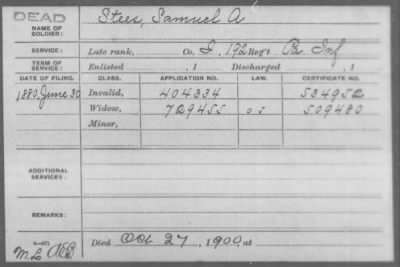 DEAD
NAME OF SOLDIER: Stees, Samuel A
SERVICE: Late rank, Co. I, 192 Reg't Pa. Inf
TERM OF SERVICE: Enlisted , 1 Discharged , 1
DATE OF FILING. CLASS. APPLICATION NO. LAW. CERTIFICATE NO.
1880, June 30 Invalid, 404334 534952
Widow, 729455 os 509480
Minor,
ADDITIONAL SERVICES:
REMARKS:
Died Oct 27, 1900, at